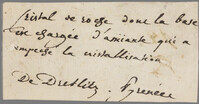 Cristal de roche dont la base
est chargée d'amiante qui a
empeché la cristallisation
De Dreslitz. Pyrenées